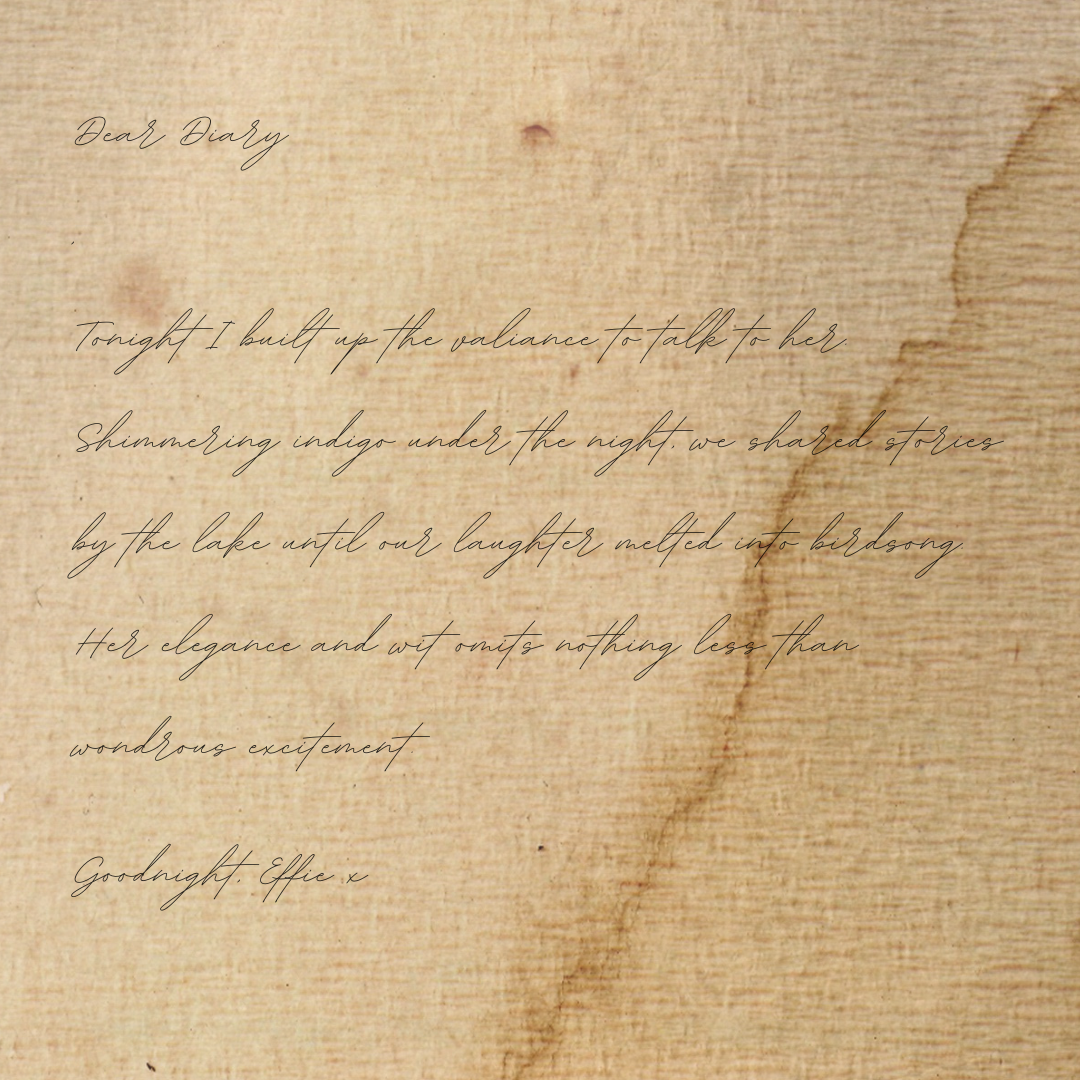 Dear Diary
Tonight I built up the valiance to talk to her.
Shimmering indigo under the night, we shared stories
by the lake until our laughter melted into birdsong.
Her elegance and wit omits nothing less than
wondrous excitement.
Goodnight, Effie x